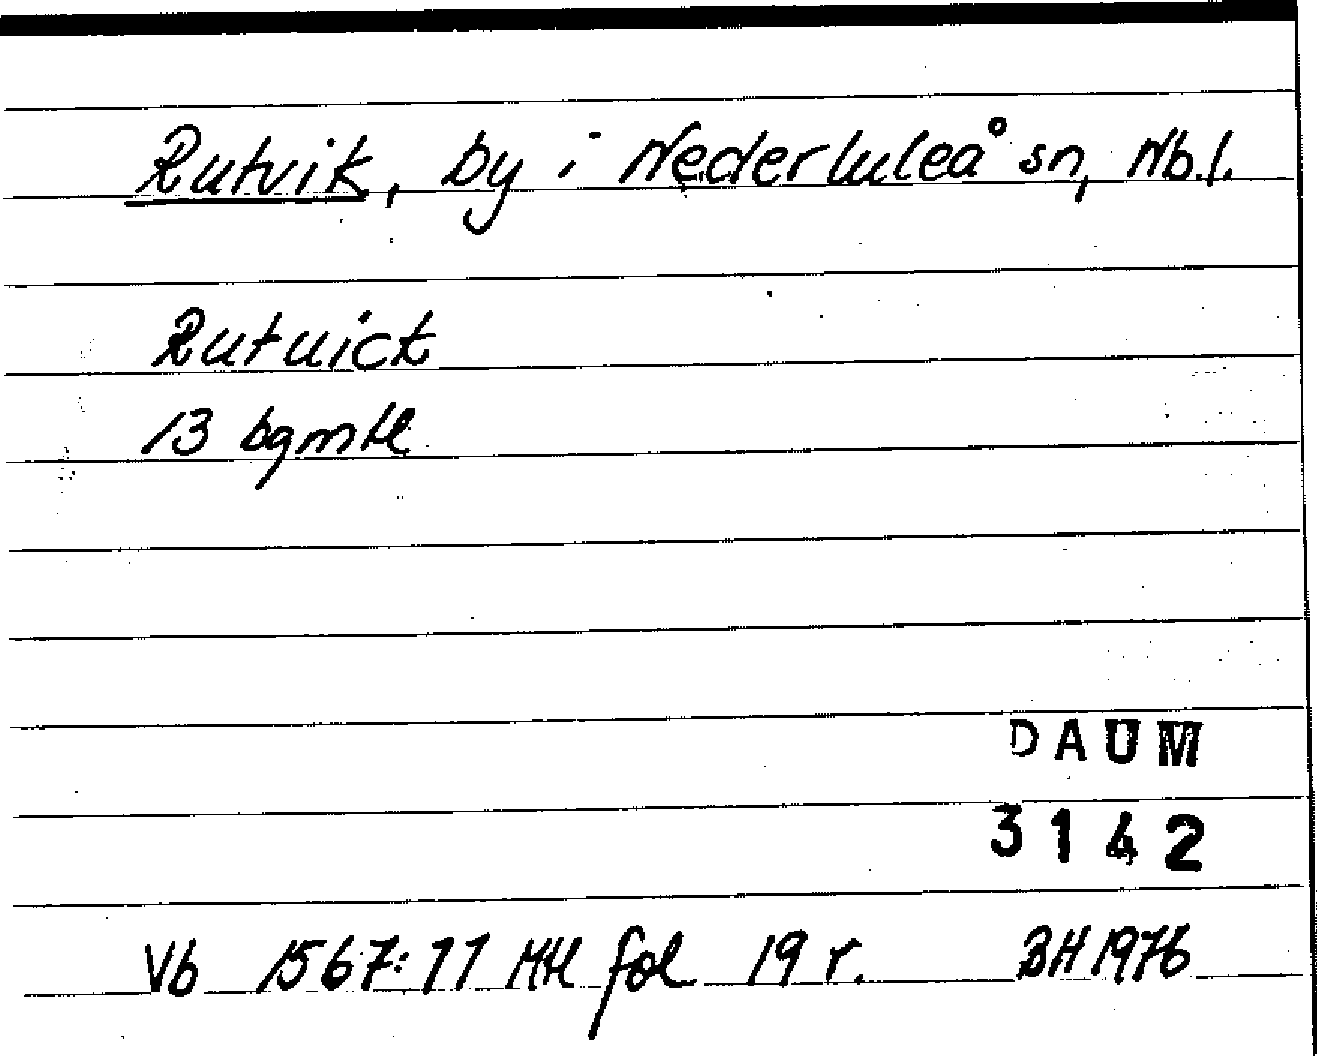 Rutvik, by i Nederluleå sn, Nb.l.
Rutuick
13 bgmtl
DAUM
3142
Vb 1567:11 Mtl fol 19 r. BH 1976